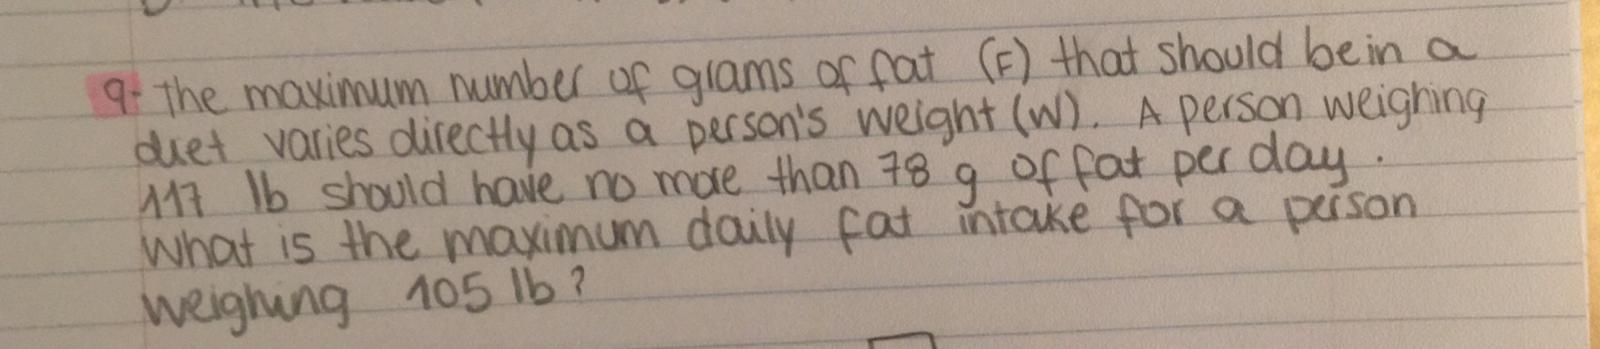 9- the maximum number of grams of fat (F) that should be in a
diet varies directly as a person's weight (W). A person weighing
117 lb should have no more than 78 g of fat per day.
What is the maximum daily fat intake for a person
weighing 105 lb?